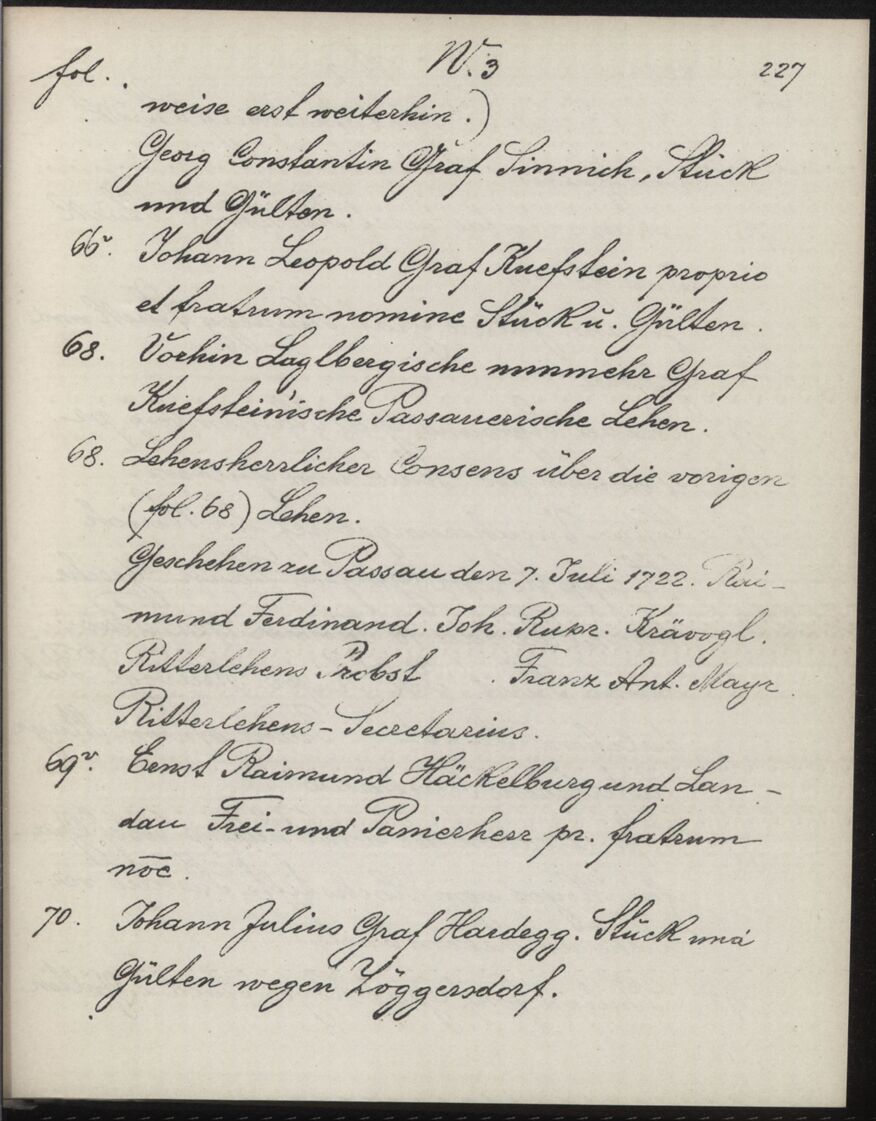 fol. N. 3 227
weise erst weiterhin.)
Georg Constantin Graf Sinnich, Stück
und Gülten.
66v. Johann Leopold Graf Kuefstein proprio
et fratrum nomine Stück u. Gülten.
68. Vorhin Laglbergische nunmehr Graf
Kuefstein'ische Passauerische Lehen.
68. Lehensherrlicher Consens über die vorigen
(fol. 68) Lehen.
Geschehen zu Passau den 7. Juli 1722. Rai-
mund Ferdinand. Joh. Rupr. Krävogl.
Ritterlehens Probst. Franz Ant. Mayr
Ritterlehens-Secretarius.
69v. Ernst Raimund Häckelburg und Lan-
dau Frei- und Panierherr pr. fratrum
nōe.
70. Johann Julius Graf Hardegg. Stück und
Gülten wegen Zöggersdorf.